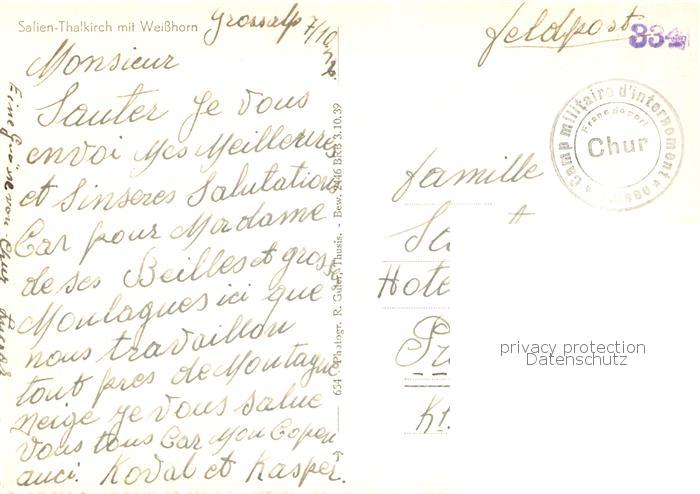 Safien-Thalkirch mit Weißhorn
Grossalp 7/10
Monsieur
Sauter Je vous
envoi Mes Meilleures
et Sinseres Salutation
Car pour Madame
de ses Beilles et gross
Moulagues ici que
nous travaillon
tout pres de Montagne
neige Je vous salue
vous tous Car Mon Copen
auci. Koval et Kasper.
Eine Grüsse von Chur
654 Photogr. R. Guler, Thusis. - Bew. 2446 BRB 3.10.39
Feldpost
834
Camp militaire d'internement
Franc de port
Chur
famille
Hote
Kt.
privacy protection
Datenschutz